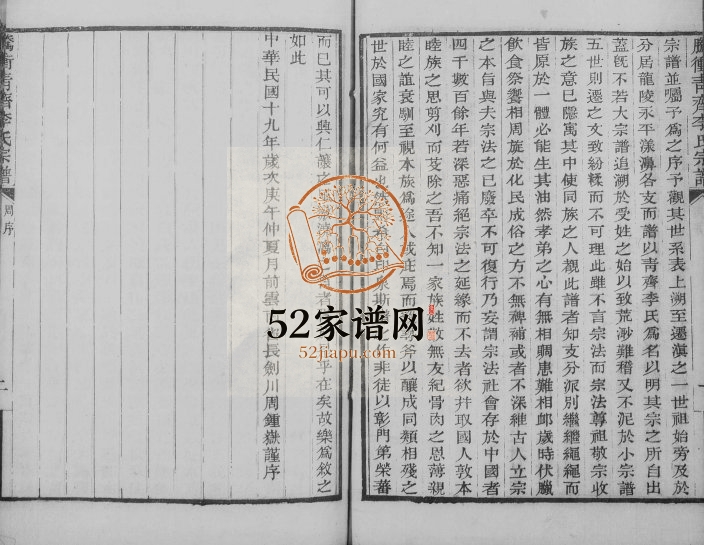 騰衝青齊李氏宗譜
宗譜並囑予爲之序予觀其世系表上溯至遷滇之一世祖始旁及於
分居龍陵永平漾濞各支而譜以青齊李氏爲名以明其宗之所自出
蓋旣不若大宗譜追溯於受姓之始以致荒渺難稽又不泥於小宗譜
五世則遷之文致紛輮而不可理此雖不言宗法而宗法尊祖敬宗收
族之意已隱寓其中使同族之人覩此譜者知支分派別繼繼繩繩而
皆原於一體必能生其油然孝弟之心有無相賙患難相䘏歲時伏臘
飲食祭饗相周旋於化民成俗之方不無裨補或者不深維古人立宗
之本旨與夫宗法之已廢卒不可復行乃妄謂宗法社會存於中國者
四千數百餘年若深惡痛絕宗法之延緣而不去者欲幷取國人敦本
睦族之恩剪刈而芟除之吾不知一家族姓敵無友紀骨肉之恩薄親
睦之誼衰馴至視本族爲途人或疵焉而斧以釀成同類相殘之
世於國家究有何益也印泉斯之作非徒以彰門第榮蕃
而已其可以興仁讓者乎在矣故樂爲敘之
如此
中華民國十九年歲次庚午仲夏月前雲長劍川周鍾嶽謹序
騰衝青齊李氏宗譜
周序
二
52家谱网
52jiapu.com